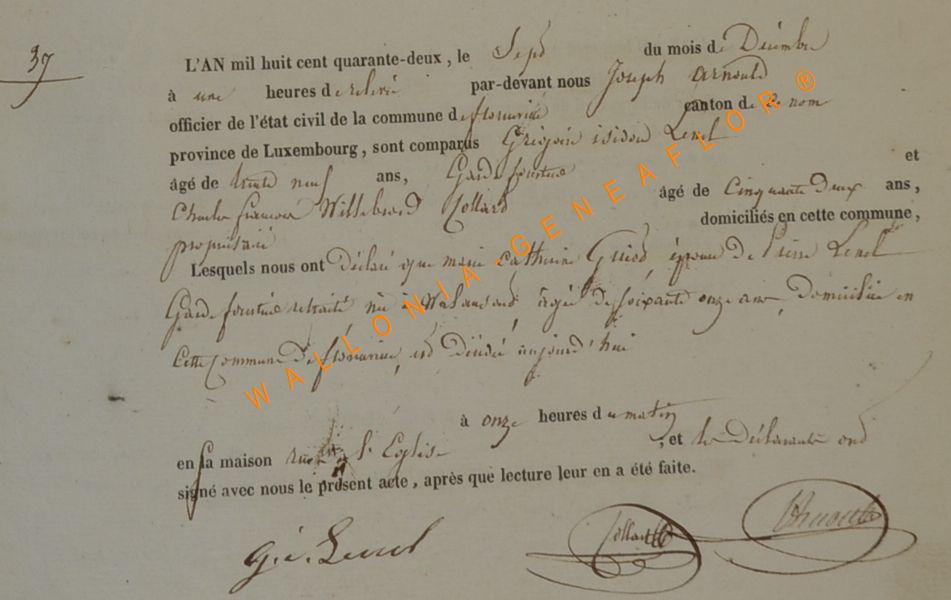 39
L'AN mil huit cent quarante-deux, le Sept du mois de Décembre
à une heures de relevée par-devant nous Joseph Arnould
officier de l'état civil de la commune de florenville canton de ce nom
province de Luxembourg, sont comparus Grégoire isidore Lenel
âgé de trente neuf ans, Garde forestier et
Charles francois Willebrord Collard âgé de Cinquante deux ans,
propriétaire domiciliés en cette commune,
Lesquels nous ont Déclaré que marie catherine Guiot épouse de Pierre Lenel
Garde forestier retraité, née à agée de soixante onze ans, domiciliée en
Cette Commune De florenville, est décédée aujourd'hui
à onze heures du matin
en sa maison rue de l'Eglise, et les déclarants ont
signé avec nous le présent acte, après que lecture leur en a été faite.
Collard
Arnould
WALLONIA-GENEAFLOR ®